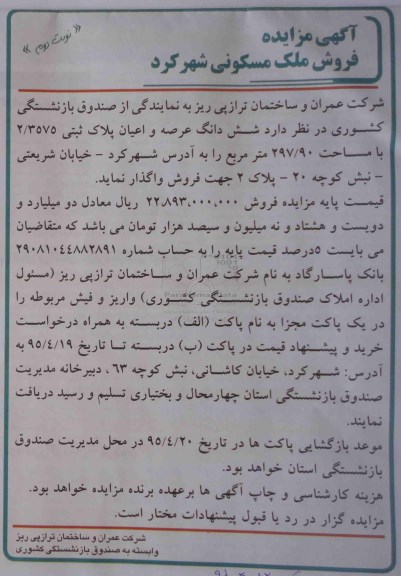 آگهی مزایده
فروش ملک مسکونی شهرکرد
« نوبت دوم »
شرکت عمران و ساختمان ترازپی ریز به نمایندگی از صندوق بازنشستگی
کشوری در نظر دارد شش دانگ عرصه و اعیان پلاک ثبتی ۲/۳۵۷۵
با مساحت ۲۹۷/۹۰ متر مربع را به آدرس شهرکرد – خیابان شریعتی
– نبش کوچه ۲۰ – پلاک ۲ جهت فروش واگذار نماید.
قیمت پایه مزایده فروش ۲۲،۸۹۳،۰۰۰،۰۰۰ ریال معادل دو میلیارد و
دویست و هشتاد و نه میلیون و سیصد هزار تومان می باشد که متقاضیان
می بایست ۵درصد قیمت پایه را به حساب شماره ۲۹۰۸۱۰۴۴۸۸۲۸۹۱
بانک پاسارگاد به نام شرکت عمران و ساختمان ترازپی ریز (مسئول
اداره املاک صندوق بازنشستگی کشوری) واریز و فیش مربوطه را
در یک پاکت مجزا به نام پاکت (الف) دربسته به همراه درخواست
خرید و پیشنهاد قیمت در پاکت (ب) دربسته تا تاریخ ۹۵/۴/۱۹ به
آدرس: شهرکرد، خیابان کاشانی، نبش کوچه ۶۳ ، دبیرخانه مدیریت
صندوق بازنشستگی استان چهارمحال و بختیاری تسلیم و رسید دریافت
نمایند.
موعد بازگشایی پاکت ها در تاریخ ۹۵/۴/۲۰ در محل مدیریت صندوق
بازنشستگی استان خواهد بود.
هزینه کارشناسی و چاپ آگهی ها برعهده برنده مزایده خواهد بود.
مزایده گزار در رد یا قبول پیشنهادات مختار است.
شرکت عمران و ساختمان ترازپی ریز
وابسته به صندوق بازنشستگی کشوری